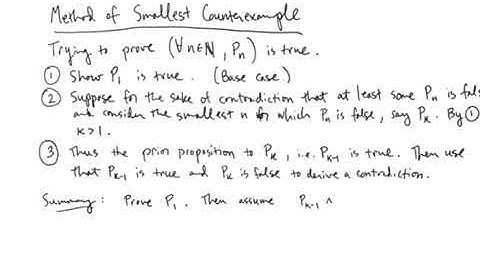 Method of Smallest Counterexample
Trying to prove (∀n∈ℕ, Pn) is true.
① Show P1 is true. (Base case.)
② Suppose for the sake of contradiction that at least some Pn is fals
and consider the smallest n for which Pn is false, say Pk. By ①
k>1.
③ Thus the prior proposition to Pk, i.e. Pk-1 is true. Then use
that Pk-1 is true and Pk is false to derive a contradiction.
Summary: Prove P1. Then assume Pk-1 ∧